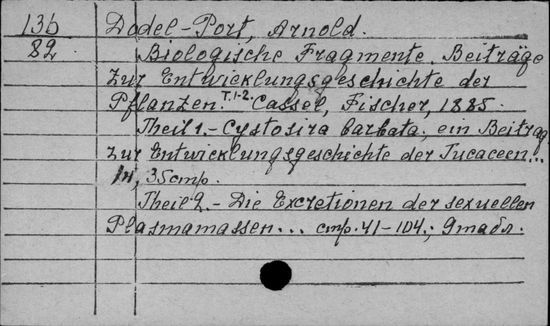 13b Dodel-Port, Arnold.
82 Biologische Fragmente. Beiträge
zur Entwicklungsgeschichte der
Pflanzen. T.1-2. Cassel, Fischer, 1885.
Theil 1.- Cystosira barbata; ein Beitrag
zur Entwicklungsgeschichte der Fucaceen...
35 стр.
Theil 2.- Die Excretionen der sexuellen
Plasmamassen... стр. 41-104.; 9 табл.